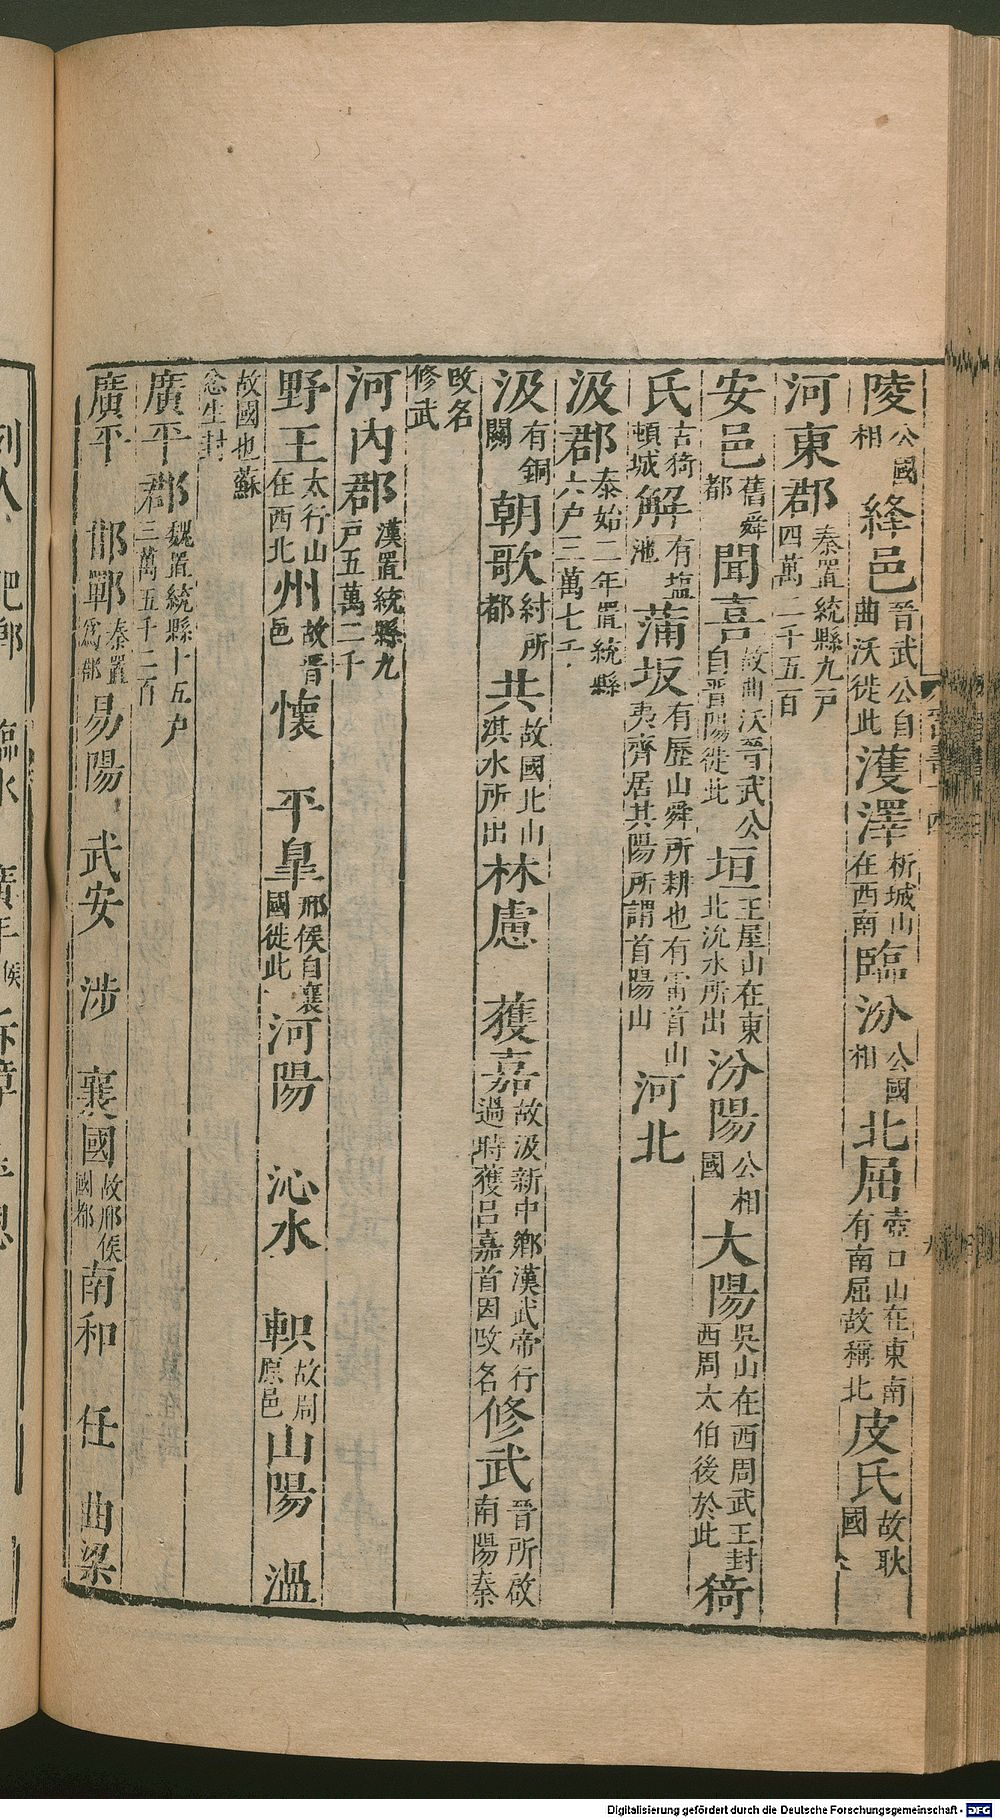 陵公國相絳邑晉武公自曲沃徙此濩澤析城山在西南臨汾公國相北屈壺口山在東南有南屈故稱北皮氏故耿國
河東郡秦置統縣九戸四萬二千五百
安邑舊舜都聞喜故曲沃晉武公自晉陽徙此垣王屋山在東北沇水所出汾陽公相國大陽吳山在西周武王封西周太伯後於此猗
氏古猗頓城解有塩池蒲坂有歷山舜所耕也有雷首山夷齊居其陽所謂首陽山河北
汲郡泰始二年置統縣六户三萬七千
汲有銅關朝歌紂所都共故國北山淇水所出林慮 獲嘉故汲新中鄉漢武帝行過時獲呂嘉首因改名修武晉所啟南陽秦
改名修武
河内郡漢置統縣九戸五萬二千
野王太行山在西北州故晉邑懷 平皐邢侯自襄國徙此河陽 沁水 軹故周原邑山陽 溫
故國也蘇忿生封
廣平郡魏置統縣十五户三萬五千二百
廣平 邯鄲秦置爲郡易陽 武安 涉 襄國故邢侯國都南和 任 曲梁
Digitalisierung gefördert durch die Deutsche Forschungsgemeinschaft - DFG